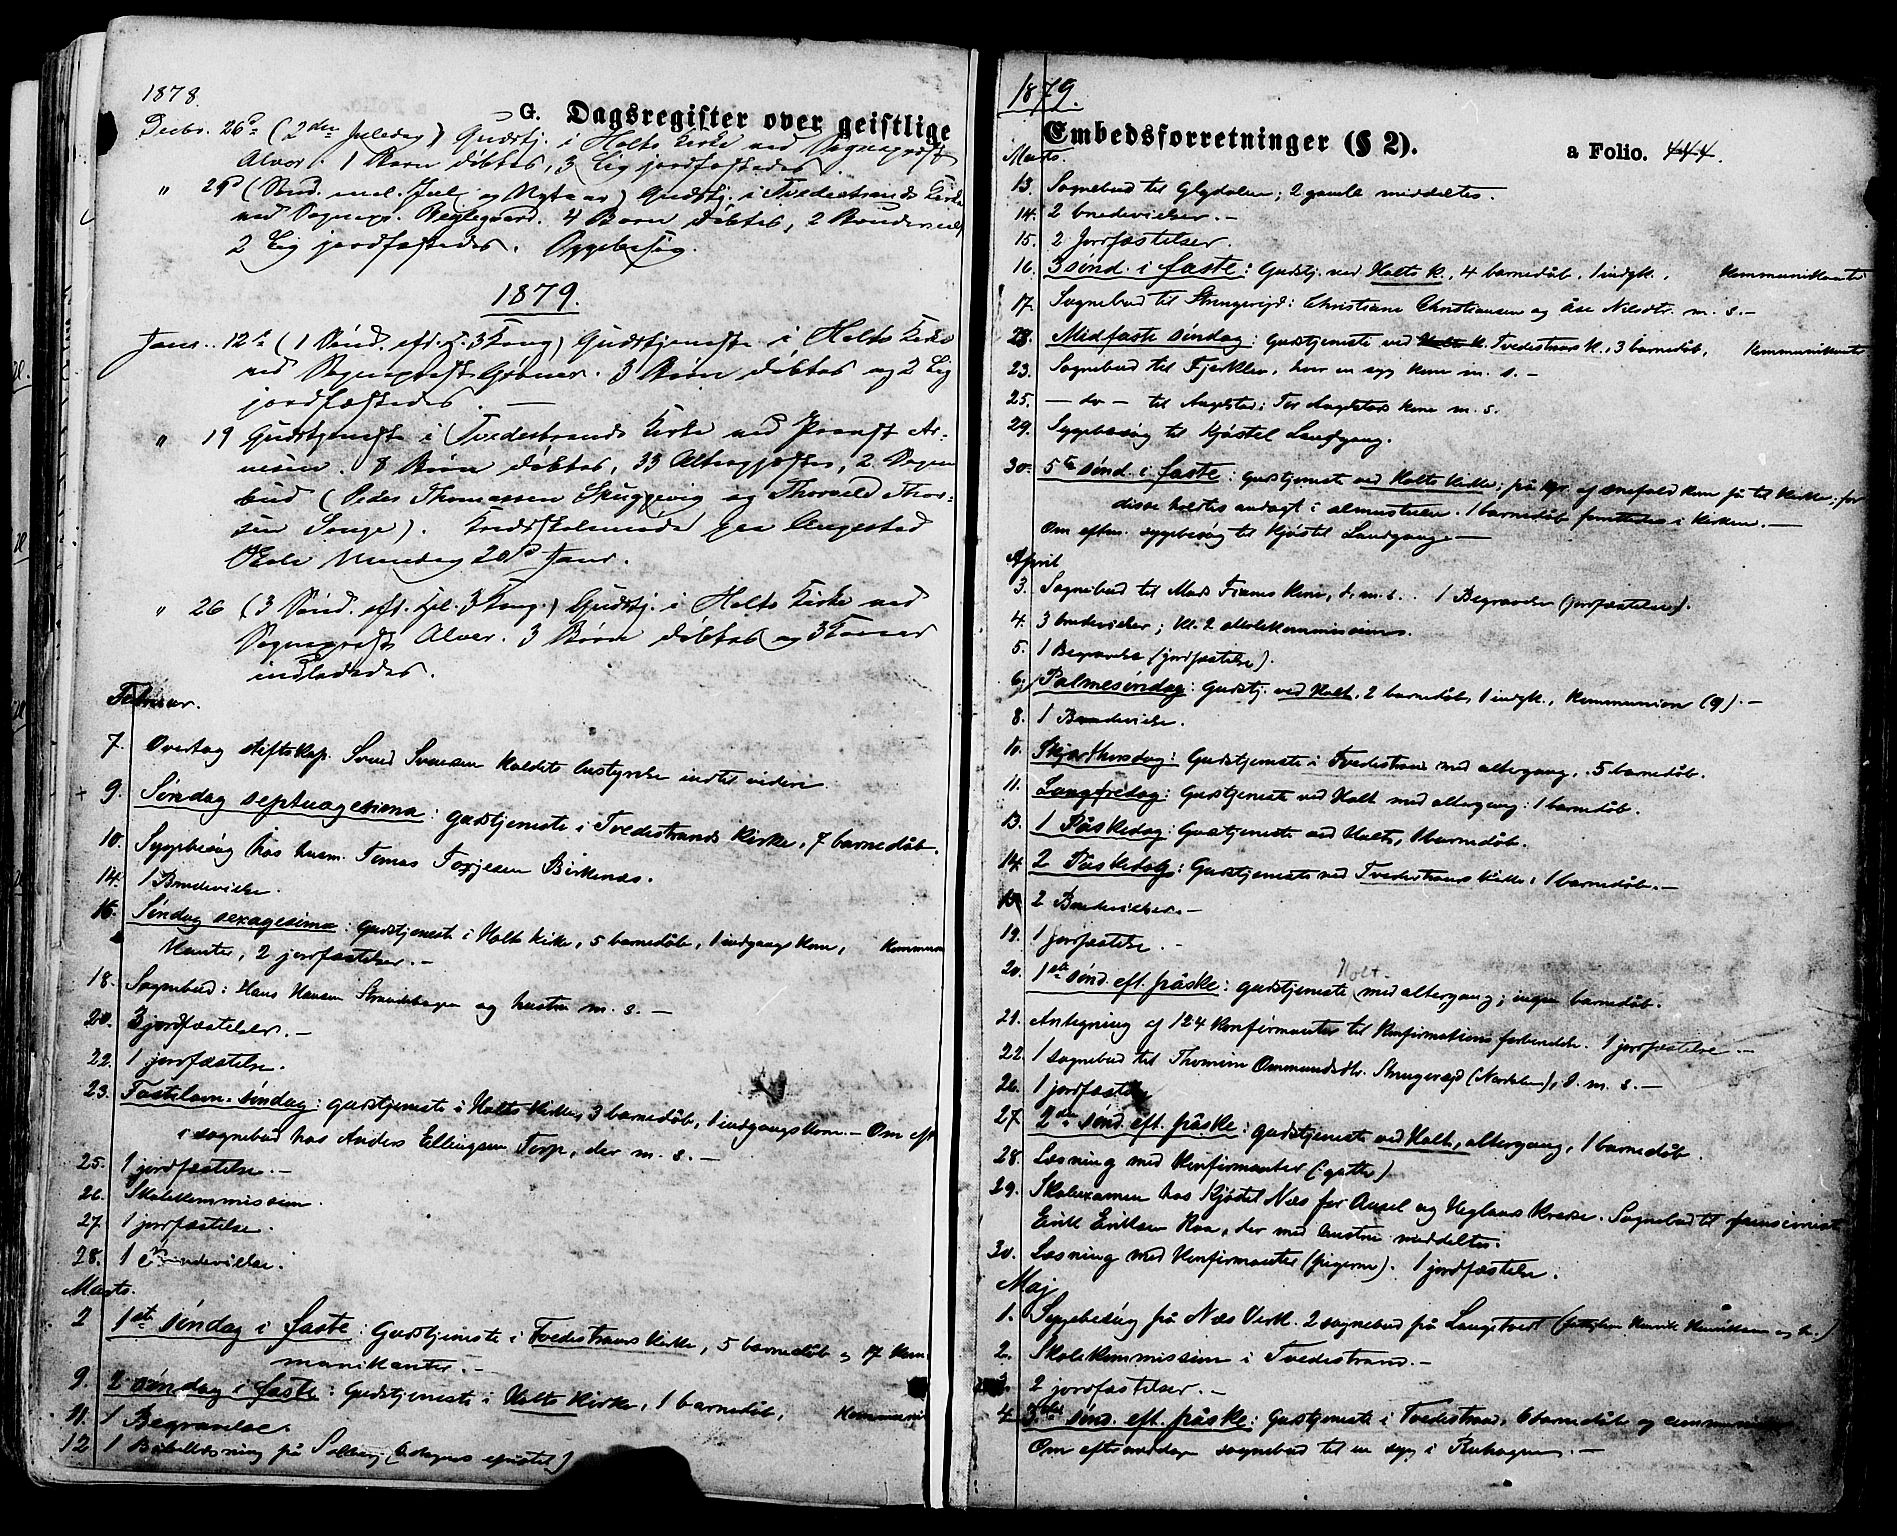 1878.
G. Dagsregister over geistlige
Decbr. 26de (2den Juledag) Gudstj. i Holts Kirke ved Sogneprest
Alver. 1 Barn døbtes, 3 Lig jordfæstedes.
" 29d (Sønd. mel. Jul og Nytaar) Gudstj. i Tvedestrands Kirke
ved Sognepr. 4 Børn døbtes, 2
2 Lig jordfæstedes. Sygebesøg.
1879.
Janr. 12te (1 Sønd. eft. H. 3 Kong.) Gudstjeneste i Holts Kirke
ved Sogneprest 3 Børn døbtes og 2 Lig
jordfæstedes. —
" 19 Gudstjeneste i Tvedestrands Kirke ved Provst Ar-
nesen. 8 Børn døbtes, 33 Altergjæster, 2 Sogne-
bud (Peder Thomassen og Thorvald Thor-
sen Songe). paa Augestad
Skole Mandag 20de Janr.
" 26 (3 Sønd. eft. Hel. 3 Kong.) Gudstj. i Holts Kirke ved
Sogneprest Alver. 3 Børn døbtes og 3 Koner
indlededes.
Februar.
7. Overtog stiftskap. Svend Svensen Kaldets bestyrelse indtil videre.
9. Søndag septuagesima: gudstjeneste i Tvedestrands Kirke, 7 barnedåb.
10. Sygebesøg hos husm. Tomas Torjesen Birkenes.
14. 1 Brudevielse.
16. Søndag sexagesima: Gudstjeneste i Holts kirke, 5 barnedåb, 1 indgangskone, Kommuni-
kanter, 2 jordfæstelser. —
18. Sognebud: Hans Hansen og hustru m. s. —
20. 3 jordfæstelser. —
22. 1 jordfæstelse.
23. Fastelavns-søndag: gudstjeneste i Holts kirke, 3 barnedåb, 1 indgangskone. — Om eft.
i sognebud hos Anders Ellingsen Torp, der m. s. —
25. 1 jordfæstelse. —
26. Skolekommission.
27. 1 jordfæstelse.
28. 1 brudevielse.
Marts.
2 1ste søndag i faste: Gudstjeneste i Tvedestrands kirke, 5 barnedåb og 17 kom-
munikanter. —
9. 2 søndag i faste: Gudstjeneste i Holts kirke, 1 barnedåb, Kommuni
11. 1 Begravelse.
12 1 Bibellæsning på Solberg
1879.
Embedsforretninger (§ 2).
a Folio. 444.
Marts.
13. Sognebud til Glydalen; 2 gamle middeltes.
14. 2 brudevielser. —
15. 2 Jordfæstelser.
16. 3 sønd. i faste: Gudstj. ved Holts k., 4 barnedåb, 1 indgk., Kommunikanter
17. Sognebud til Strengereid: Christiane Christiansen og Åse Nilsdtr. m. s. —
23. Midfaste søndag: Gudstjeneste ved Holts k. Tvedestrands k., 3 barnedåb, Kommunikanter
23. Sognebud til Fjerkleiv, hvor en syg kone m. s. —
25. — do — til Augestad: Tor Augestads kone m. s.
29. Sygebesøg til Kjøstel Landgang.
30. 5te sønd. i faste: Gudstjeneste ved Holts kirke; på Gr. af snefald kun få til kirke. for
disse holdtes andagt i almuestuen. 1 barnedåb forrettedes i kirken. —
Om eftm. sygebesøg til Kjøstel Landgang. —
April
3. Sognebud til Mads kone, d. m. s. 1 Begravelse (jordfæstelse).
4. 3 brudevielser; kl. 2 skolekommission.
5. 1 Begravelse (jordfæstelse).
6. Palmesøndag: Gudstj. ved Holt, 2 barnedåb, 1 indgk., kommunion (9). —
8. 1 Brudevielse.
10. Skjærthorsdag: Gudstjeneste i Tvedestrand med altergang, 5 barnedåb.
11. Langfredag: Gudstjeneste ved Holt med altergang: 1 barnedåb.
13. 1 Påskedag: Gudstjeneste ved Holt, 1 barnedåb.
14. 2 Påskedag: Gudstjeneste ved Tvedestrands kirke; 1 barnedåb. —
2 Brudevielser. —
19. 1 jordfæstelse. —
20. 1ste sønd. eft. påske: gudstjeneste Holt med altergang; ingen barnedåb.
21. Antegning af 124 Konfirmanter til Konfirmationsforberedelse. 1 jordfæstelse —
22. 1 sognebud til Thomine Ommundsdtr. Strengereid d. m. s. —
26. 1 jordfæstelse
27. 2den sønd. eft. påske: gudstjeneste ved Holt, altergang, 1 barnedåb.
28. Læsning med Konfirmanter (gutter).
29. Skolexamen hos Kjøstel Næs for og Sognebud til
Erik Eriksen der med hustru middeltes.
30. Læsning med Konfirmanter (pigerne). 1 jordfæstelse.
Maj
1. Sygebesøg på Næs Verk. 2 sognebud på Langtvedt
2. Skolekommission i Tvedestrand. —
3. 2 jordfæstelser. —
4. 3die sønd. eft. påske: Gudstjeneste i Tvedestrand, 6 barnedåb og
Om eftermiddagen sognebud til en syg i —